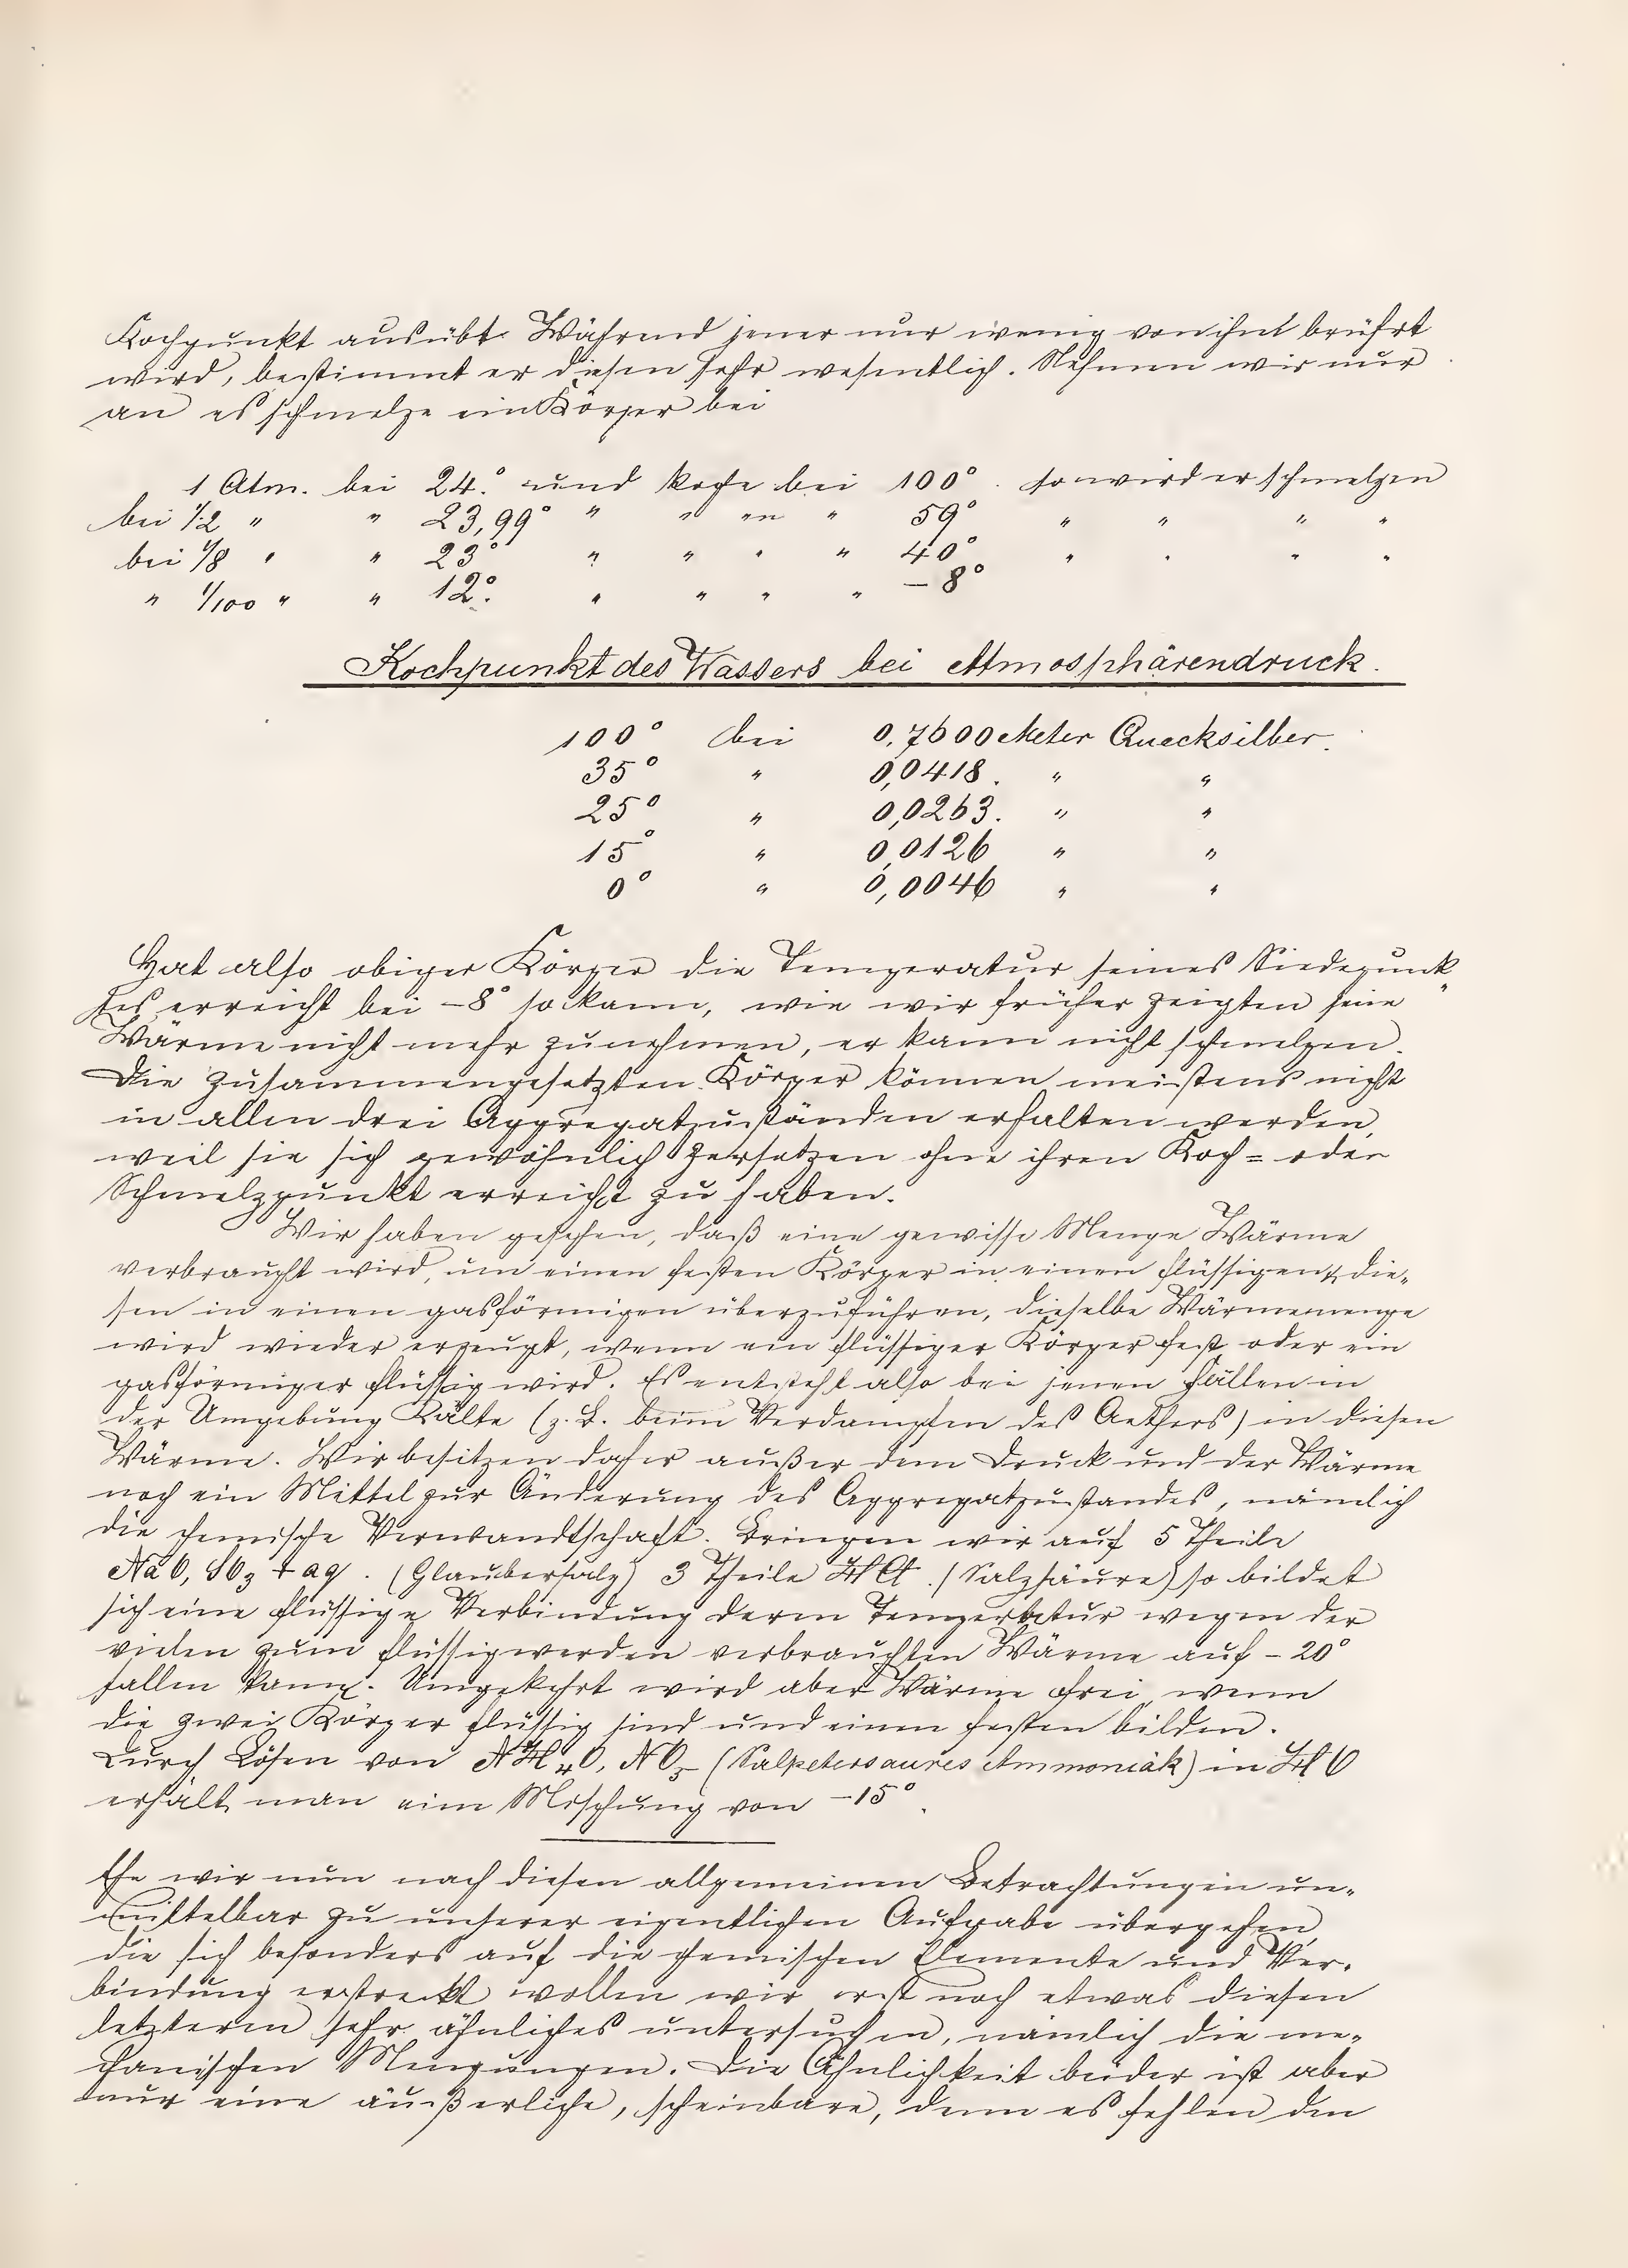 Kochpunkt ausübt. Während jener nur wenig von ihm brührt
wird, bestimmt er diesen sehr wesentlich. Nehmen wir nur
an es schmelze ein Körper bei
1 Atm. bei 24.° und koche bei 100°. so wird er schmelzen
bei 1/2 " " 23,99° " " " " 59° " " " "
bei 1/8 " " 23° " " " " 40° " " " "
" 1/100 " " 12°. " " " " – 8°
Kochpunkt des Wassers bei Atmosphärendruck.
100° bei 0,7600 Meter Quecksilber.
35° " 0,0418. " "
25° " 0,0263. " "
15° " 0,0126 " "
0° " 0,0046 " "
Hat also obiger Körper die Temperatur seines Siedepunk-
tes erreicht bei –8° so kann, wie wir früher zeigten seine
Wärme nicht mehr zunehmen, er kann nicht schmelzen.
Die zusammengesetzten Körper können meistens nicht
in allen drei Aggregatzuständen erhalten werden,
weil sie sich gewöhnlich zersetzen ohne ihren Koch= oder
Schmelzpunkt erreicht zu haben.
Wir haben gesehen, daß eine gewisse Menge Wärme
verbraucht wird, um einen festen Körper in einen flüssigen & die-
sen in einen gasförmigen überzuführen, dieselbe Wärmemenge
wird wieder erzeugt, wenn ein flüssiger Körper fest oder ein
gasförmiger flüssig wird. Es entsteht also bei jenen Fällen in
der Umgebung Kälte (z. B. beim Verdampfen des Aethers) in diesen
Wärme. Wir besitzen daher außer dem Druck und der Wärme
noch ein Mittel zur Änderung des Aggregatzustandes, nämlich
die chemische Verwandtschaft. Bringen wir auf 5 Theile
NaO, SO3 + aq. (Glaubersalz) 3 Theile HCl. (Salzsäure) so bildet
sich eine flüssige Verbindung deren Temperatur wegen der
vielen zum flüssigwerden verbrauchten Wärme auf – 20°
fallen kann. Umgekehrt wird aber Wärme frei, wenn
die zwei Körper flüssig sind und einen festen bilden.
Durch Lösen von NH4O, NO5 (Salpetersaures Ammoniak) in HO
erhält man eine Mischung von –15°.
Ehe wir nun nach diesen allgemeinen Betrachtungen un-
mittelbar zu unserer eigentlichen Aufgabe übergehen,
die sich besonders auf die chemischen Elemente und Ver-
bindung erstreckt wollen wir erst noch etwas diesen
letzteren sehr ähnliches untersuchen, nämlich die me-
chanischen Mengungen. Die Ähnlichkeit beider ist aber
nur eine äußerliche, scheinbare, denn es fehlen den